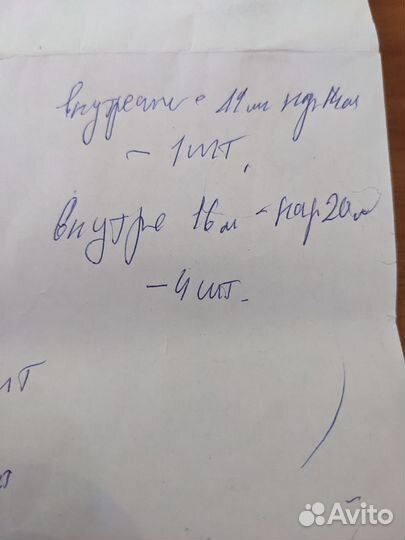 внутренне 11 мм нар 14 мм
- 1 шт.
внутре 16 м - нар 20 м
- 4 шт.
Avito